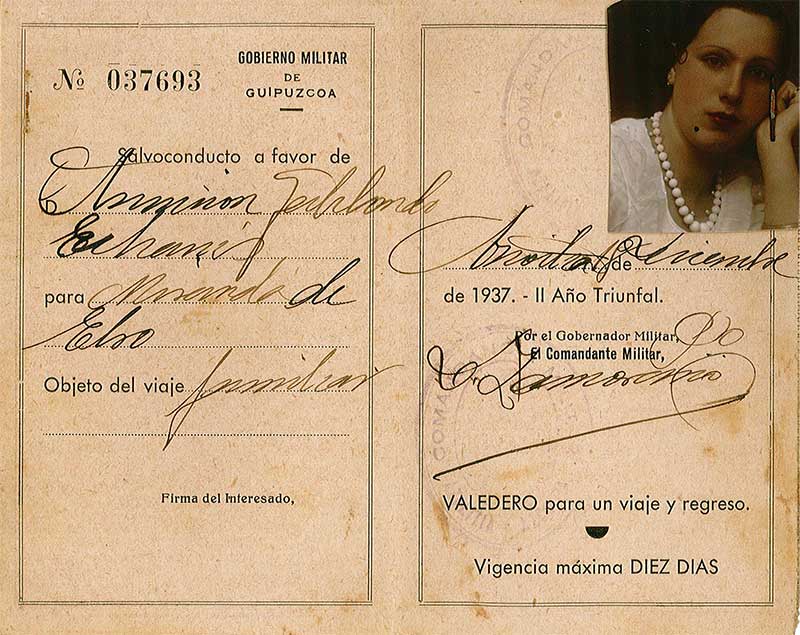 Nº 037693
GOBIERNO MILITAR
DE
GUIPUZCOA
Salvoconducto a favor de
para Miranda de
Ebro
Objeto del viaje familiar
Firma del Interesado,
COMAND
de Diciembre
de 1937. - II Año Triunfal.
Por el Gobernador Militar,
El Comandante Militar,
COMAN
VALEDERO para un viaje y regreso.
Vigencia máxima DIEZ DIAS